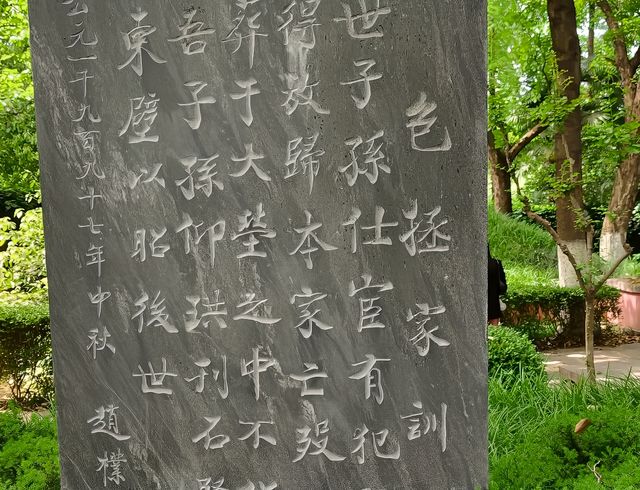 包拯家訓
世子孫仕宦有犯
得放歸本家亡歿
葬于大塋之中不
吾子孫仰珙刊石
東壁以昭後世
公元一千九百九十七年中秋 趙樸